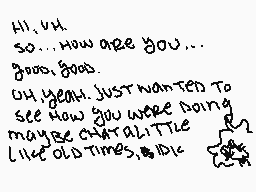 HI, UH.
SO... HOW ARE YOU...
GOOD, GOOD.
UH, YEAH. JUST WANTED TO
SEE HOW YOU WERE DOING
MAYBE CHAT A LITTLE
LIKE OLD TIMES, IDK